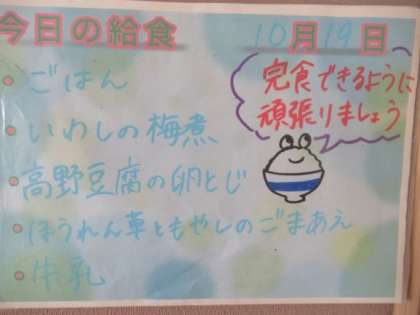 今日の給食 10月19日
・ごはん
・いわしの梅煮
・高野豆腐の卵とじ
・ほうれん草ともやしのごまあえ
・牛乳
完食できるように
頑張りましょう